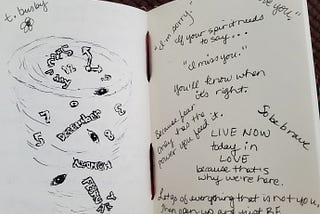 t. busby
7
5
8
3
DECEMBER
"I'm sorry"
If your spirit needs
to say...
"I miss you."
You'll know when
it's right.
Because fear
only has the
power you feed it.
So be brave
LIVE NOW
today in
LOVE
because that's
why we're here.
Let go of everything that is not you,
Then open up and just BE